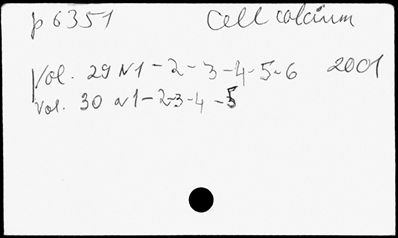 p 6351 Cell calcium
Vol. 29 N1-2-3-4-5-6 2001
Vol. 30 N1-2-3-4-5